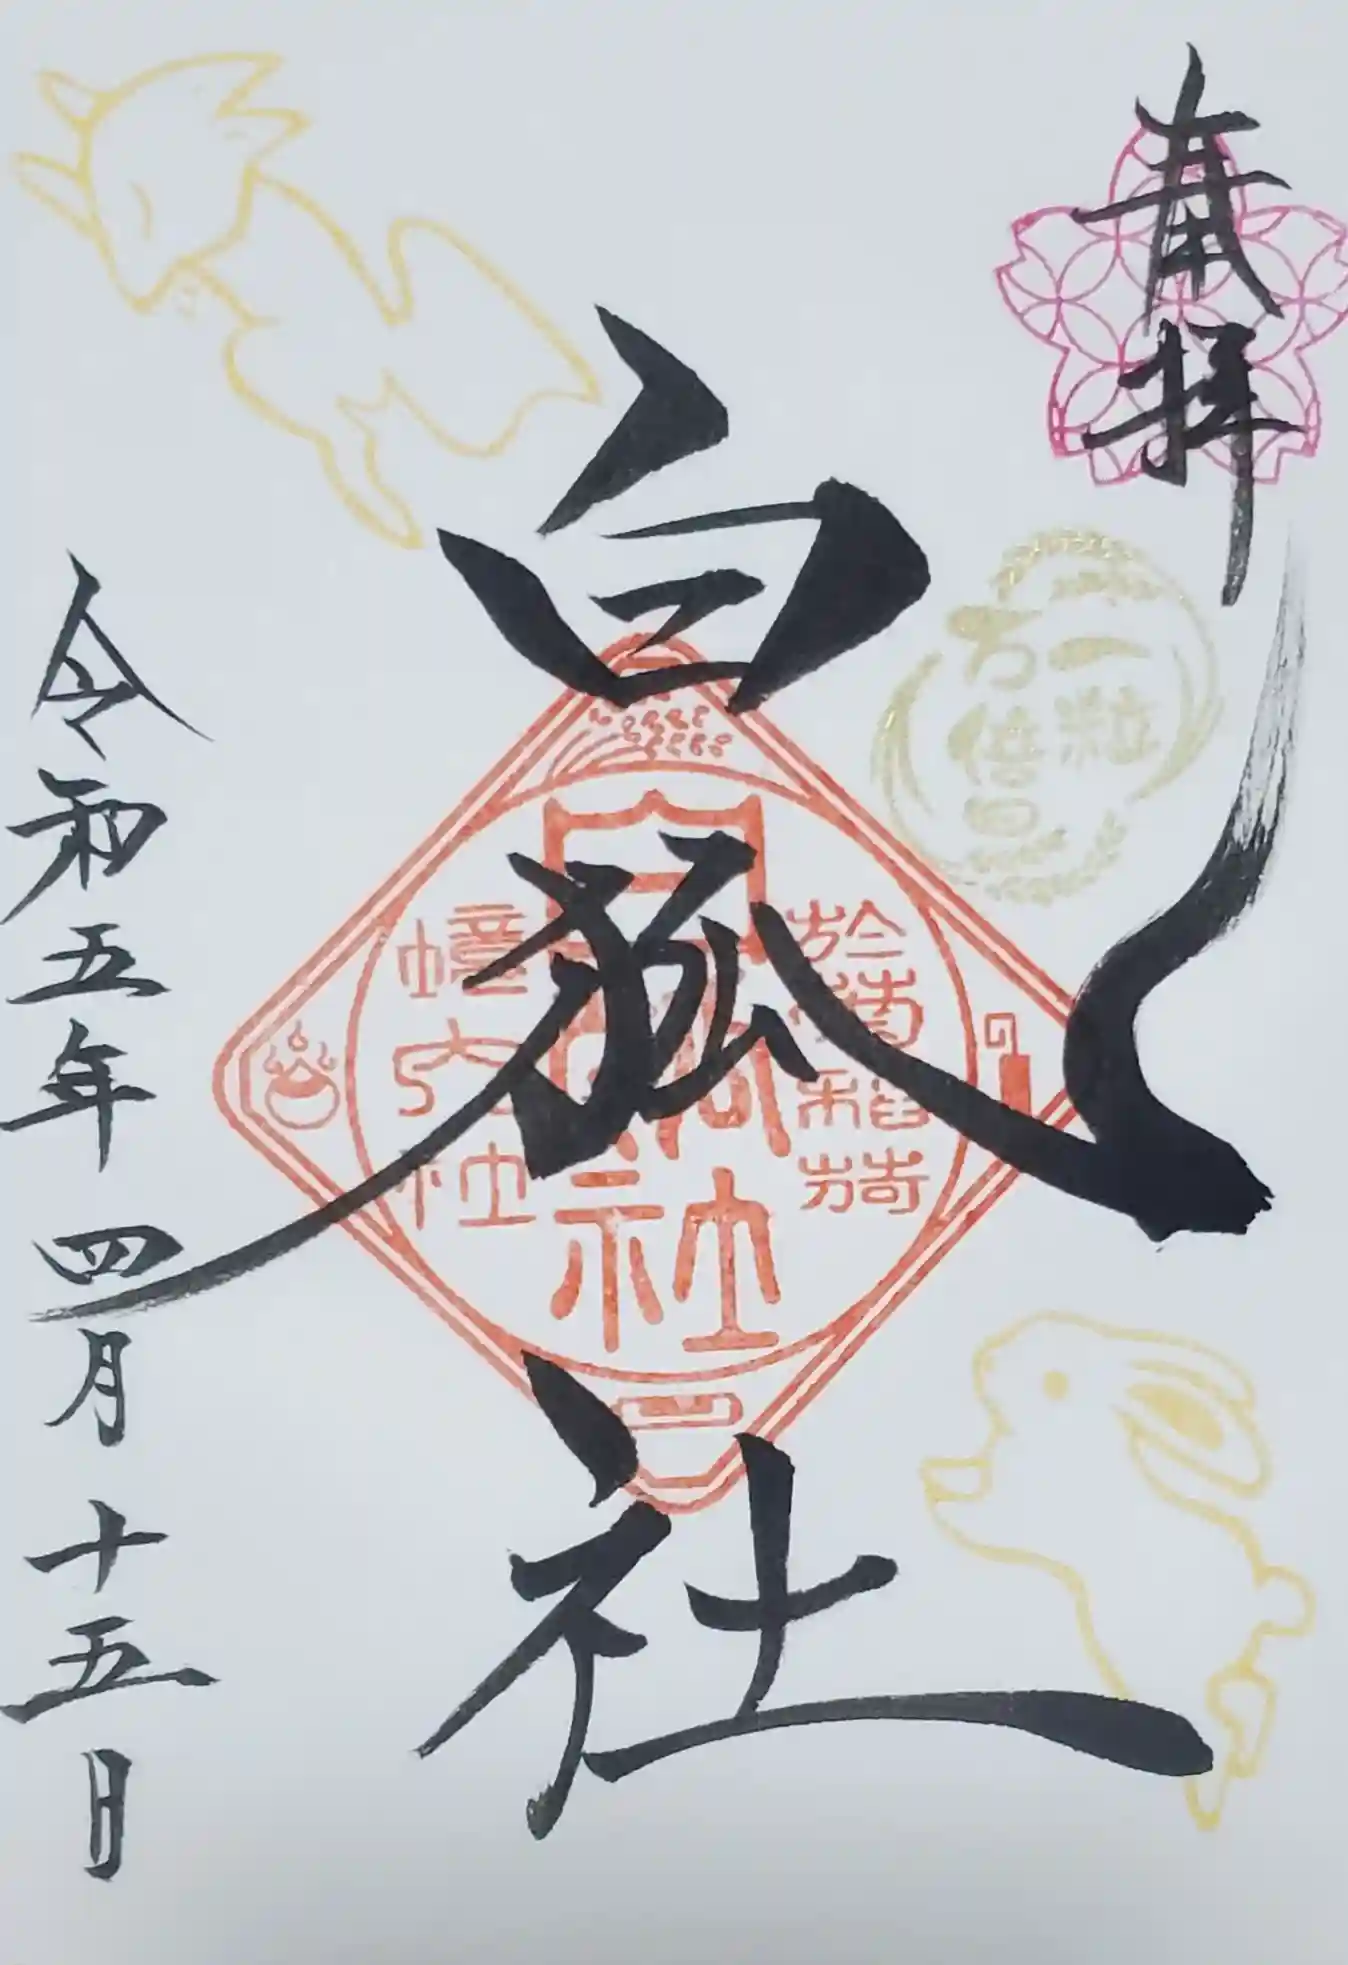 奉拝
一粒
万倍日
白狐社
令和五年四月十五日